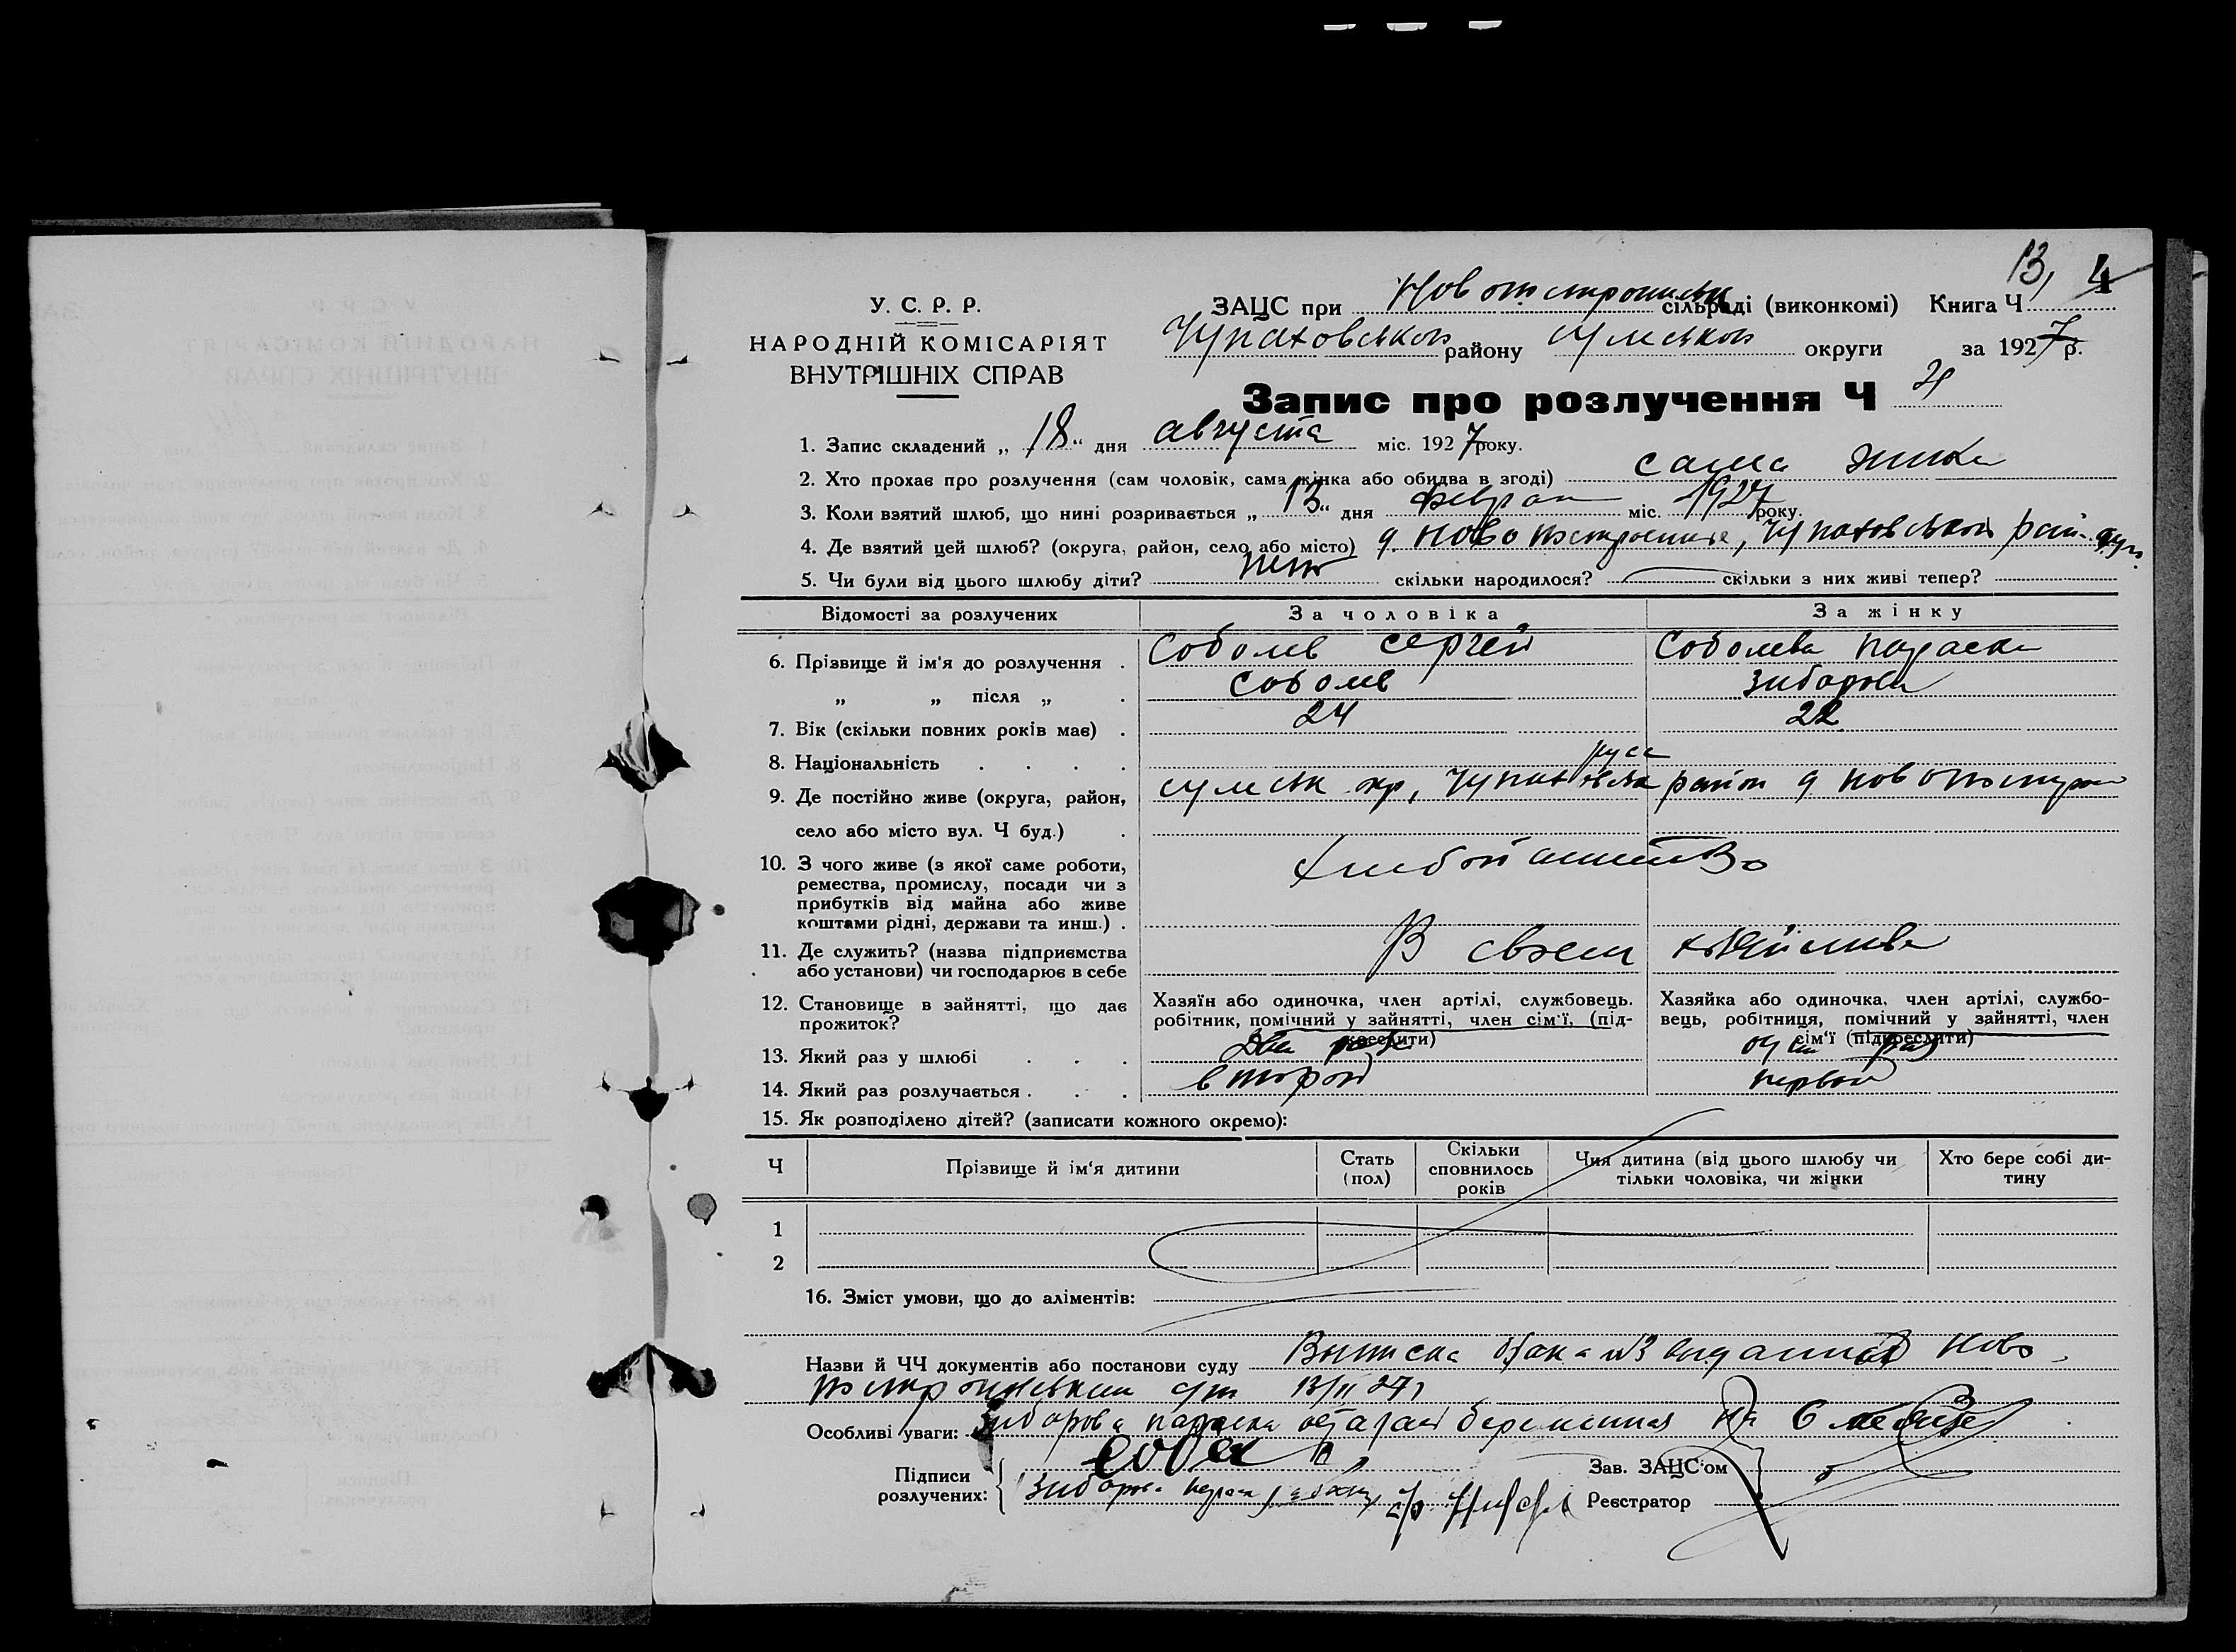 13, 4
У. С. Р. Р.
НАРОДНІЙ КОМІСАРІЯТ
ВНУТРІШНІХ СПРАВ
ЗАЦС при сільраді (виконкомі) Книга Ч
Чупаховськой району Сумськой округи за 1927 р.
Запис про розлучення Ч 4
1. Запис складений „ 18 “ дня августа міс. 1927 року.
2. Хто прохає про розлучення (сам чоловік, сама жінка або обидва в згоді) сама жинка
3. Коли взятий шлюб, що нині розривається „ 13 “ дня феврал міс. 1927 року.
4. Де взятий цей шлюб? (округа, район, село або місто) д. Чупаховськой рай.
5. Чи були від цього шлюбу діти? нет скільки народилося? скільки з них живі тепер?
Відомості за розлучених За чоловіка За жінку
6. Прізвище й ім'я до розлучення . Соболев Сергей Соболева Параска
„ „ після „ . Соболев Зиборова
7. Вік (скільки повних років має) . 24 22
8. Національність . . . . русс
9. Де постійно живе (округа, район, сумськ окр, район д
село або місто вул. Ч буд.) .
10. З чого живе (з якої саме роботи,
ремества, промислу, посади чи з
прибутків від майна або живе
коштами рідні, держави та инш.) .
11. Де служить? (назва підприємства В своем
або установи) чи господарює в себе
12. Становище в зайнятті, що дає прожиток? Хазяїн або одиночка, член артілі, службовець. робітник, помічний у зайнятті, член сім'ї, (підкреслити) Хазяйка або одиночка, член артілі, службовець, робітниця, помічний у зайнятті, член сім'ї (підкреслити)
13. Який раз у шлюбі . . . два раз
14. Який раз розлучається . . . второй первой
15. Як розподілено дітей? (записати кожного окремо):
Ч Прізвище й ім'я дитини Стать (пол) Скільки сповнилось років Чия дитина (від цього шлюбу чи тільки чоловіка, чи жінки Хто бере собі дитину
1
2
16. Зміст умови, що до аліментів:
Назви й ЧЧ документів або постанови суду Выписка брака №3 выданной Ново-
13/II 27
Особливі уваги: Зиборова Параска беременная на 6
Підписи
розлучених: Зиборова
Зав. ЗАЦС'ом
Реєстратор